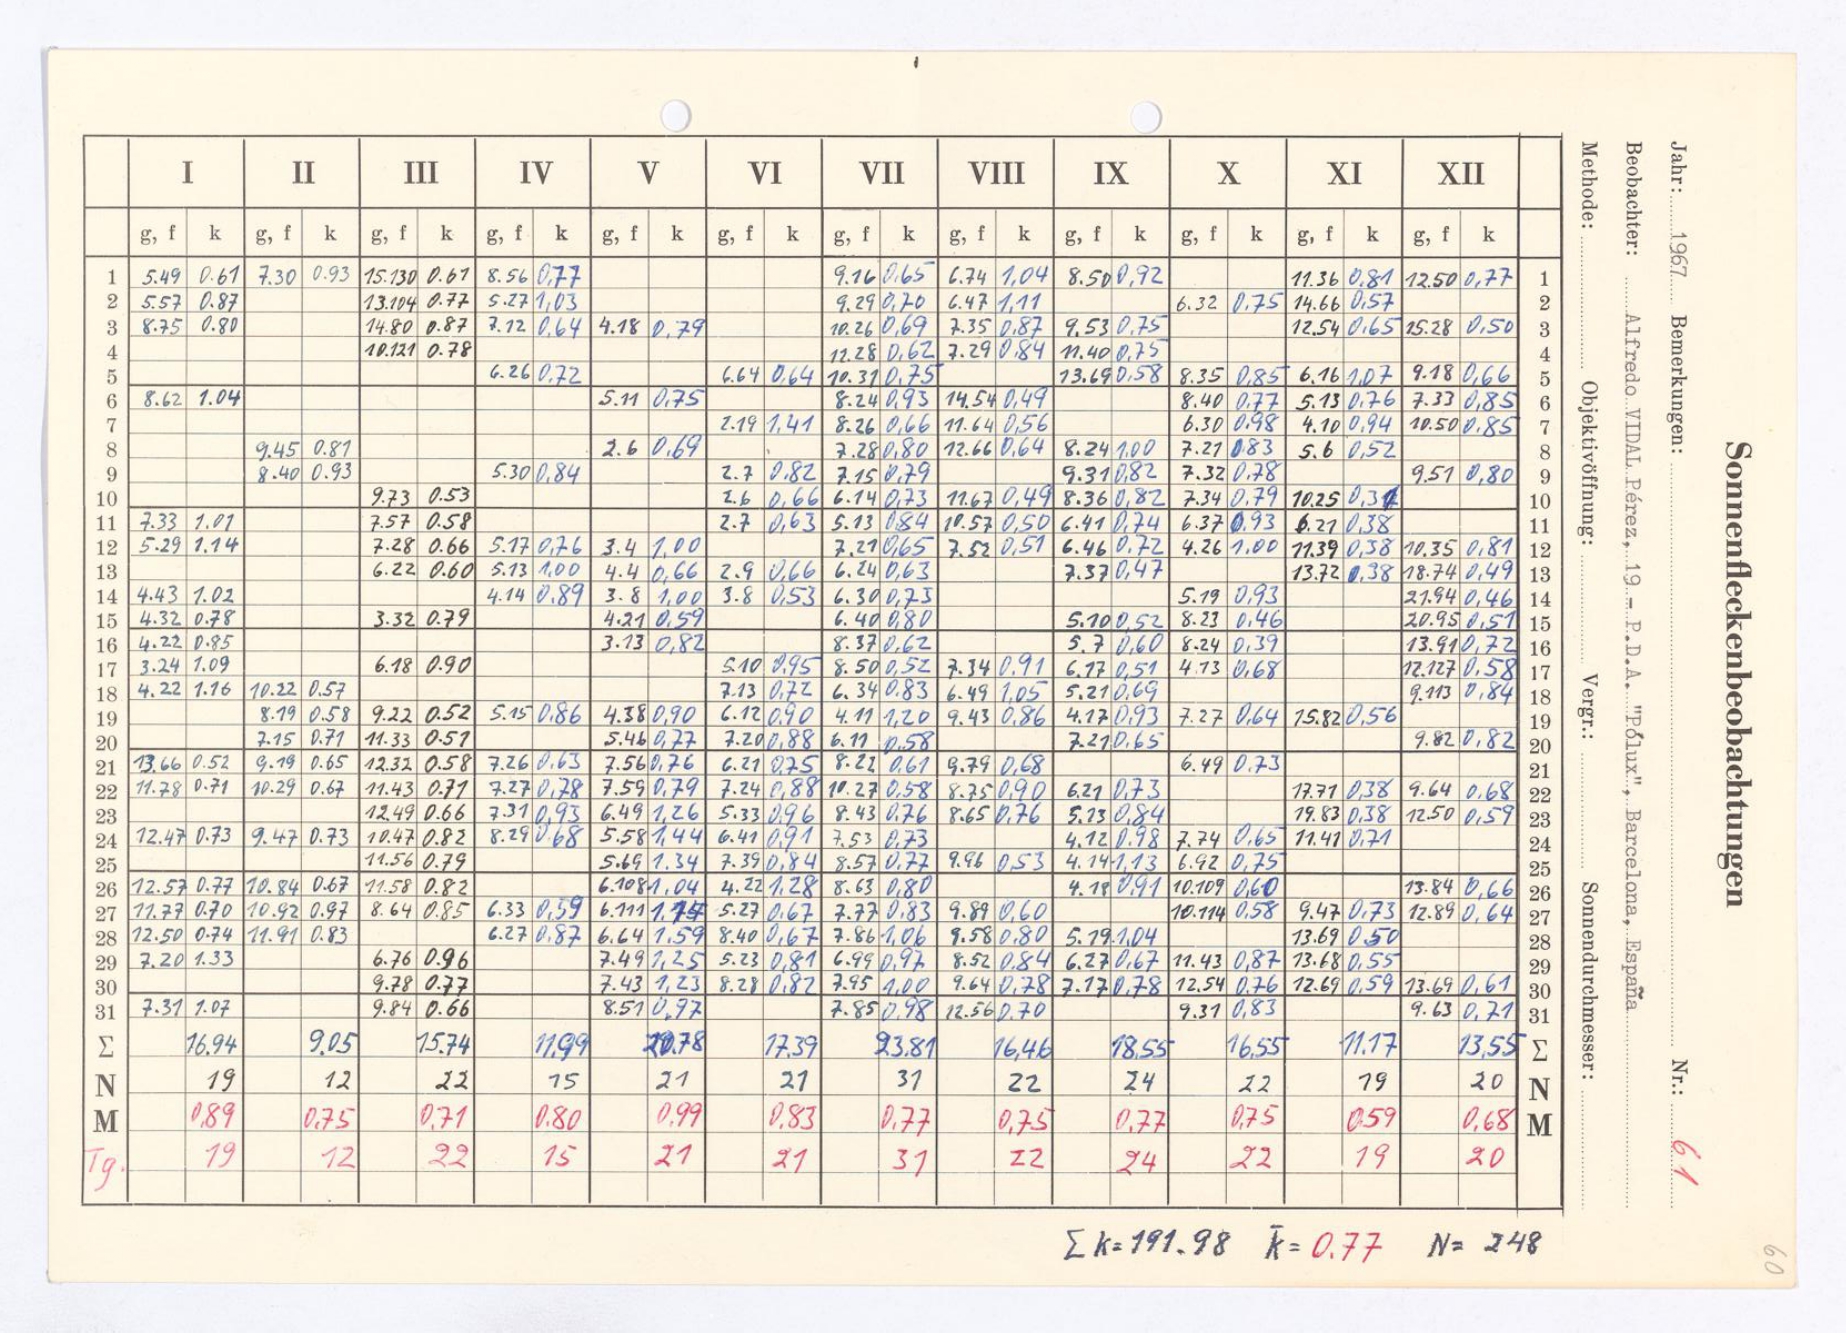 Sonnenfleckenbeobachtungen
Jahr: 1967 Bemerkungen: Nr.: 61
Beobachter: Alfredo VIDAL Pérez, 19.- P.D.A. "Pólux", Barcelona, España
Methode: Objektivöffnung: Vergr.: Sonnendurchmesser:
I II III IV V VI VII VIII IX X XI XII
g, f k g, f k g, f k g, f k g, f k g, f k g, f k g, f k g, f k g, f k g, f k g, f k
1 5.49 0.61 7.30 0.93 15.130 0.61 8.56 0,77 9.16 0,65 6.74 1,04 8.50 0,92 11.36 0,81 12.50 0,77 1
2 5.57 0.87 13.104 0.77 5.27 1,03 9.29 0,70 6.47 1,11 6.32 0,75 14.66 0,57 2
3 8.75 0.80 14.80 0.87 7.12 0,64 4.18 0,79 10.26 0,69 7.35 0,87 9.53 0,75 12.54 0,65 15.28 0,50 3
4 10.121 0.78 11.28 0,62 7.29 0,84 11.40 0,75 4
5 6.26 0,72 6.64 0,64 10.31 0,75 13.69 0,58 8.35 0,85 6.16 1,07 9.18 0,66 5
6 8.62 1.04 5.11 0,75 8.24 0,93 14.54 0,49 8.40 0,77 5.13 0,76 7.33 0,85 6
7 2.19 1,41 8.26 0,66 11.64 0,56 6.30 0,98 4.10 0,94 10.50 0,85 7
8 9.45 0.81 2.6 0,69 7.28 0,80 12.66 0,64 8.24 1,00 7.21 0,83 5.6 0,52 8
9 8.40 0.93 5.30 0,84 2.7 0,82 7.15 0,79 9.31 0,82 7.32 0,78 9.51 0,80 9
10 9.73 0.53 2.6 0,66 6.14 0,73 11.67 0,49 8.36 0,82 7.34 0,79 10.25 10
11 7.33 1.01 7.57 0.58 2.7 0,63 5.13 0,84 10.57 0,50 6.41 0,74 6.37 0,93 6.21 0,38 11
12 5.29 1.14 7.28 0.66 5.17 0,76 3.4 1,00 7.21 0,65 7.52 0,51 6.46 0,72 4.26 1,00 11.39 0,38 10.35 0,81 12
13 6.22 0.60 5.13 1,00 4.4 0,66 2.9 0,66 6.24 0,63 7.37 0,47 13.72 0,38 18.74 0,49 13
14 4.43 1.02 4.14 0,89 3.8 1,00 3.8 0,53 6.30 0,73 5.19 0,93 21.94 0,46 14
15 4.32 0.78 3.32 0.79 4.21 0,59 6.40 0,80 5.10 0,52 8.23 0,46 20.95 0,51 15
16 4.22 0.85 3.13 0,82 8.37 0,62 5.7 0,60 8.24 0,39 13.91 0,72 16
17 3.24 1.09 6.18 0.90 5.10 0,95 8.50 0,52 7.34 0,91 6.17 0,51 4.13 0,68 12.127 0,58 17
18 4.22 1.16 10.22 0.57 7.13 0,72 6.34 0,83 6.49 1,05 5.21 0,69 9.113 0,84 18
19 8.19 0.58 9.22 0.52 5.15 0,86 4.38 0,90 6.12 0,90 4.11 1,20 9.43 0,86 4.17 0,93 7.27 0,64 15.82 0,56 19
20 7.15 0.71 11.33 0.51 5.46 0,77 7.20 0,88 6.11 0,58 7.21 0,65 9.82 0,82 20
21 13.66 0.52 9.19 0.65 12.32 0.58 7.26 0,63 7.56 0,76 6.21 0,75 8.22 0,61 9.79 0,68 6.49 0,73 21
22 11.78 0.71 10.29 0.67 11.43 0.71 7.27 0,78 7.59 0,79 7.24 0,88 10.27 0,58 8.75 0,90 6.21 0,73 17.71 0,38 9.64 0,68 22
23 12.49 0.66 7.31 0,93 6.49 1,26 5.33 0,96 8.43 0,76 8.65 0,76 5.23 0,84 19.83 0,38 12.50 0,59 23
24 12.47 0.73 9.47 0.73 10.47 0.82 8.29 0,68 5.58 1,44 6.41 0,91 7.53 0,73 4.12 0,98 7.74 0,65 11.41 0,71 24
25 11.56 0.79 5.69 1.34 7.39 0,84 8.57 0,77 9.96 0,53 4.14 1,13 6.92 0,75 25
26 12.57 0.77 10.84 0.67 11.58 0.82 6.108 1,04 4.22 1,28 8.63 0,80 4.19 0,91 10.109 0,60 13.84 0,66 26
27 11.77 0.70 10.92 0.97 8.64 0.85 6.33 0,59 6.111 5.27 0,67 7.77 0,83 9.89 0,60 10.114 0,58 9.47 0,73 12.89 0,64 27
28 12.50 0.74 11.91 0.83 6.27 0,87 6.64 1,59 8.40 0,67 7.86 1,06 9.58 0,80 5.19 1,04 13.69 0,50 28
29 7.20 1.33 6.76 0.96 7.49 1,25 5.23 0,81 6.99 0,97 8.52 0,84 6.27 0,67 11.43 0,87 13.68 0,55 29
30 9.78 0.77 7.43 1,23 8.28 0,82 7.95 1,00 9.64 0,78 7.17 0,78 12.54 0,76 12.69 0,59 13.69 0,61 30
31 7.31 1.07 9.84 0.66 8.51 0,97 7.85 0,98 12.56 0,70 9.31 0,83 9.63 0,71 31
Σ 16.94 9.05 15.74 11,99 20.78 17.39 23.81 16,46 18,55 16,55 11.17 13,55 Σ
N 19 12 22 15 21 21 31 22 24 22 19 20 N
M 0,89 0,75 0,71 0.80 0,99 0,83 0,77 0,75 0,77 0,75 0.59 0,68 M
Tg. 19 12 22 15 21 21 31 22 24 22 19 20
Σ k = 191.98 k̄ = 0.77 N = 248
60